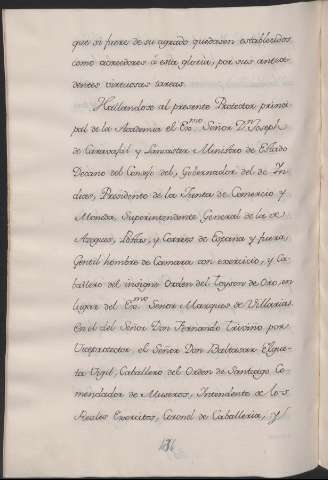 que si fuere de su agrado quedasen establecidos
como acreedores á esta gloria, por sus antece-
dentes virtuosas tareas.
Hallandose al presente Protector princi-
pal de la Academia el Exmo Señor Dn Joseph
de Caravajal y Lancaster Ministro de Estado
Decano del Consejo del, Governador del de In-
dias, Presidente de la Junta de Comercio y
Moneda, Superintendente General de la de
Azogues, Postas, y Correos de España y fuera,
Gentil hombre de Camara con exercicio, y Ca-
ballero del insigne Orden del Toyson de Oro, en
lugar del Exmo Señor Marques de Villarias
en el del Señor Don Fernando Triviño por
Viceprotector, el Señor Don Balthasar Elgue-
ta Vigil, Caballero del Orden de Santiago Co-
mendador de Museros, Intendente de los
Reales Exercitos, Coronel de Caballeria, y